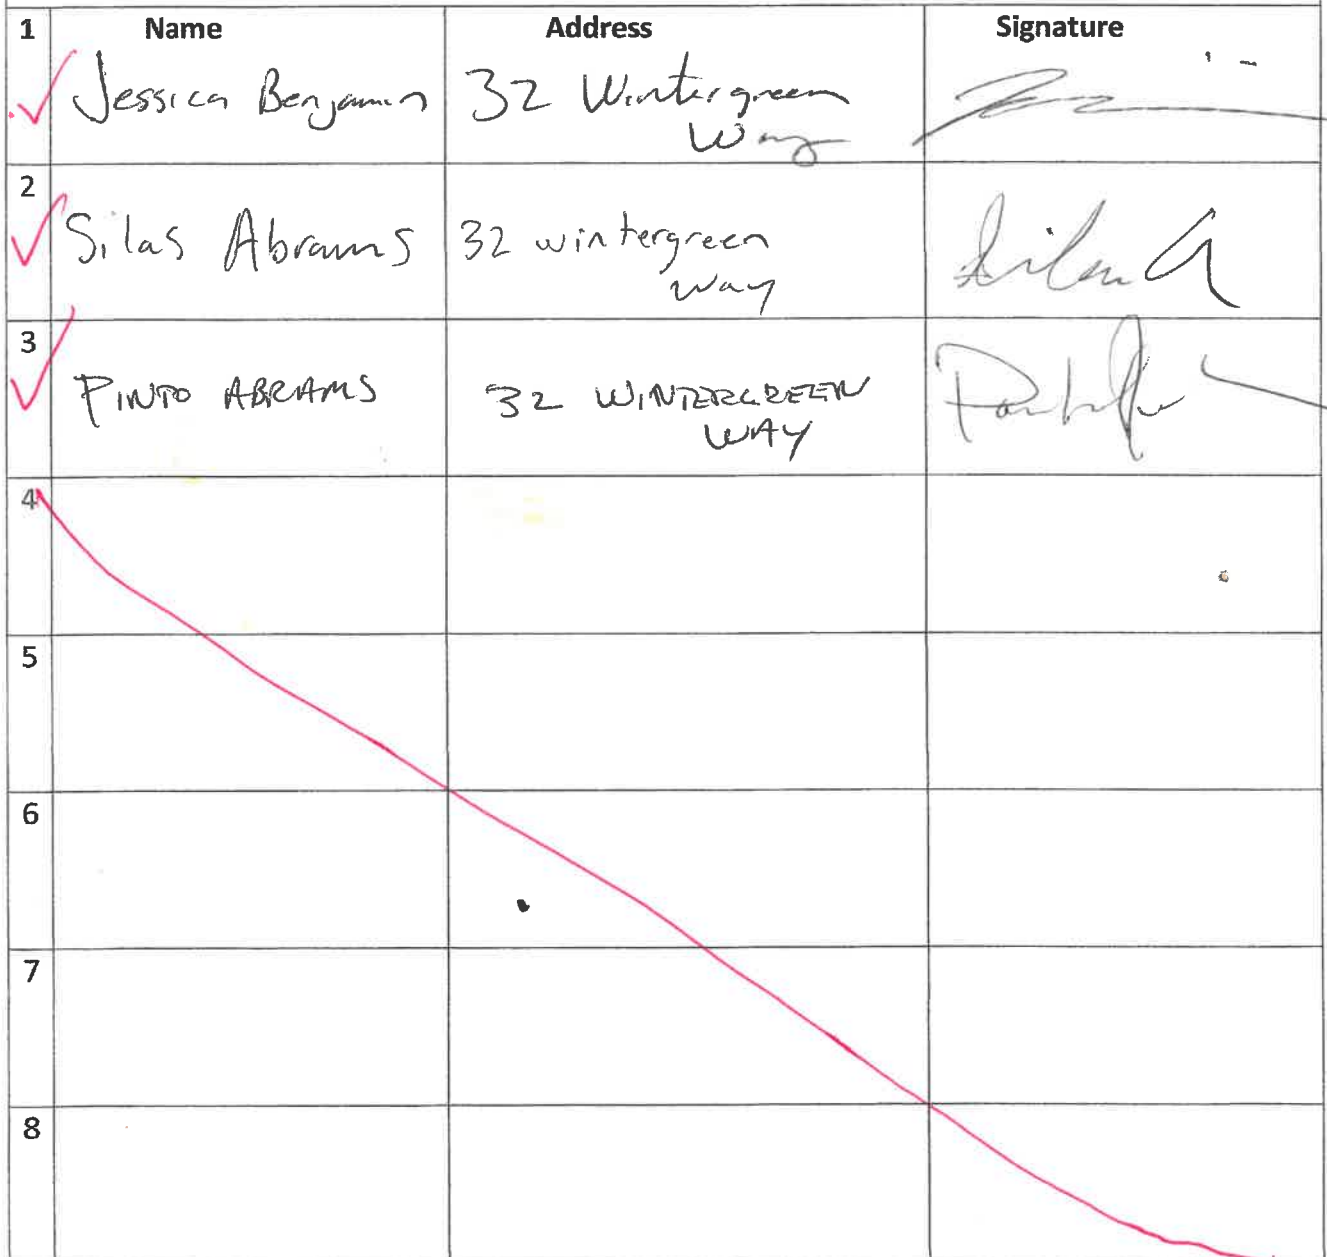 1 Name Address Signature
Jessica Benjamin 32 Wintergreen
Way
2
Silas Abrams 32 wintergreen
way Silas A
3
PINTO ABRAMS 32 WINTERGREEN
WAY
4
5
6
7
8